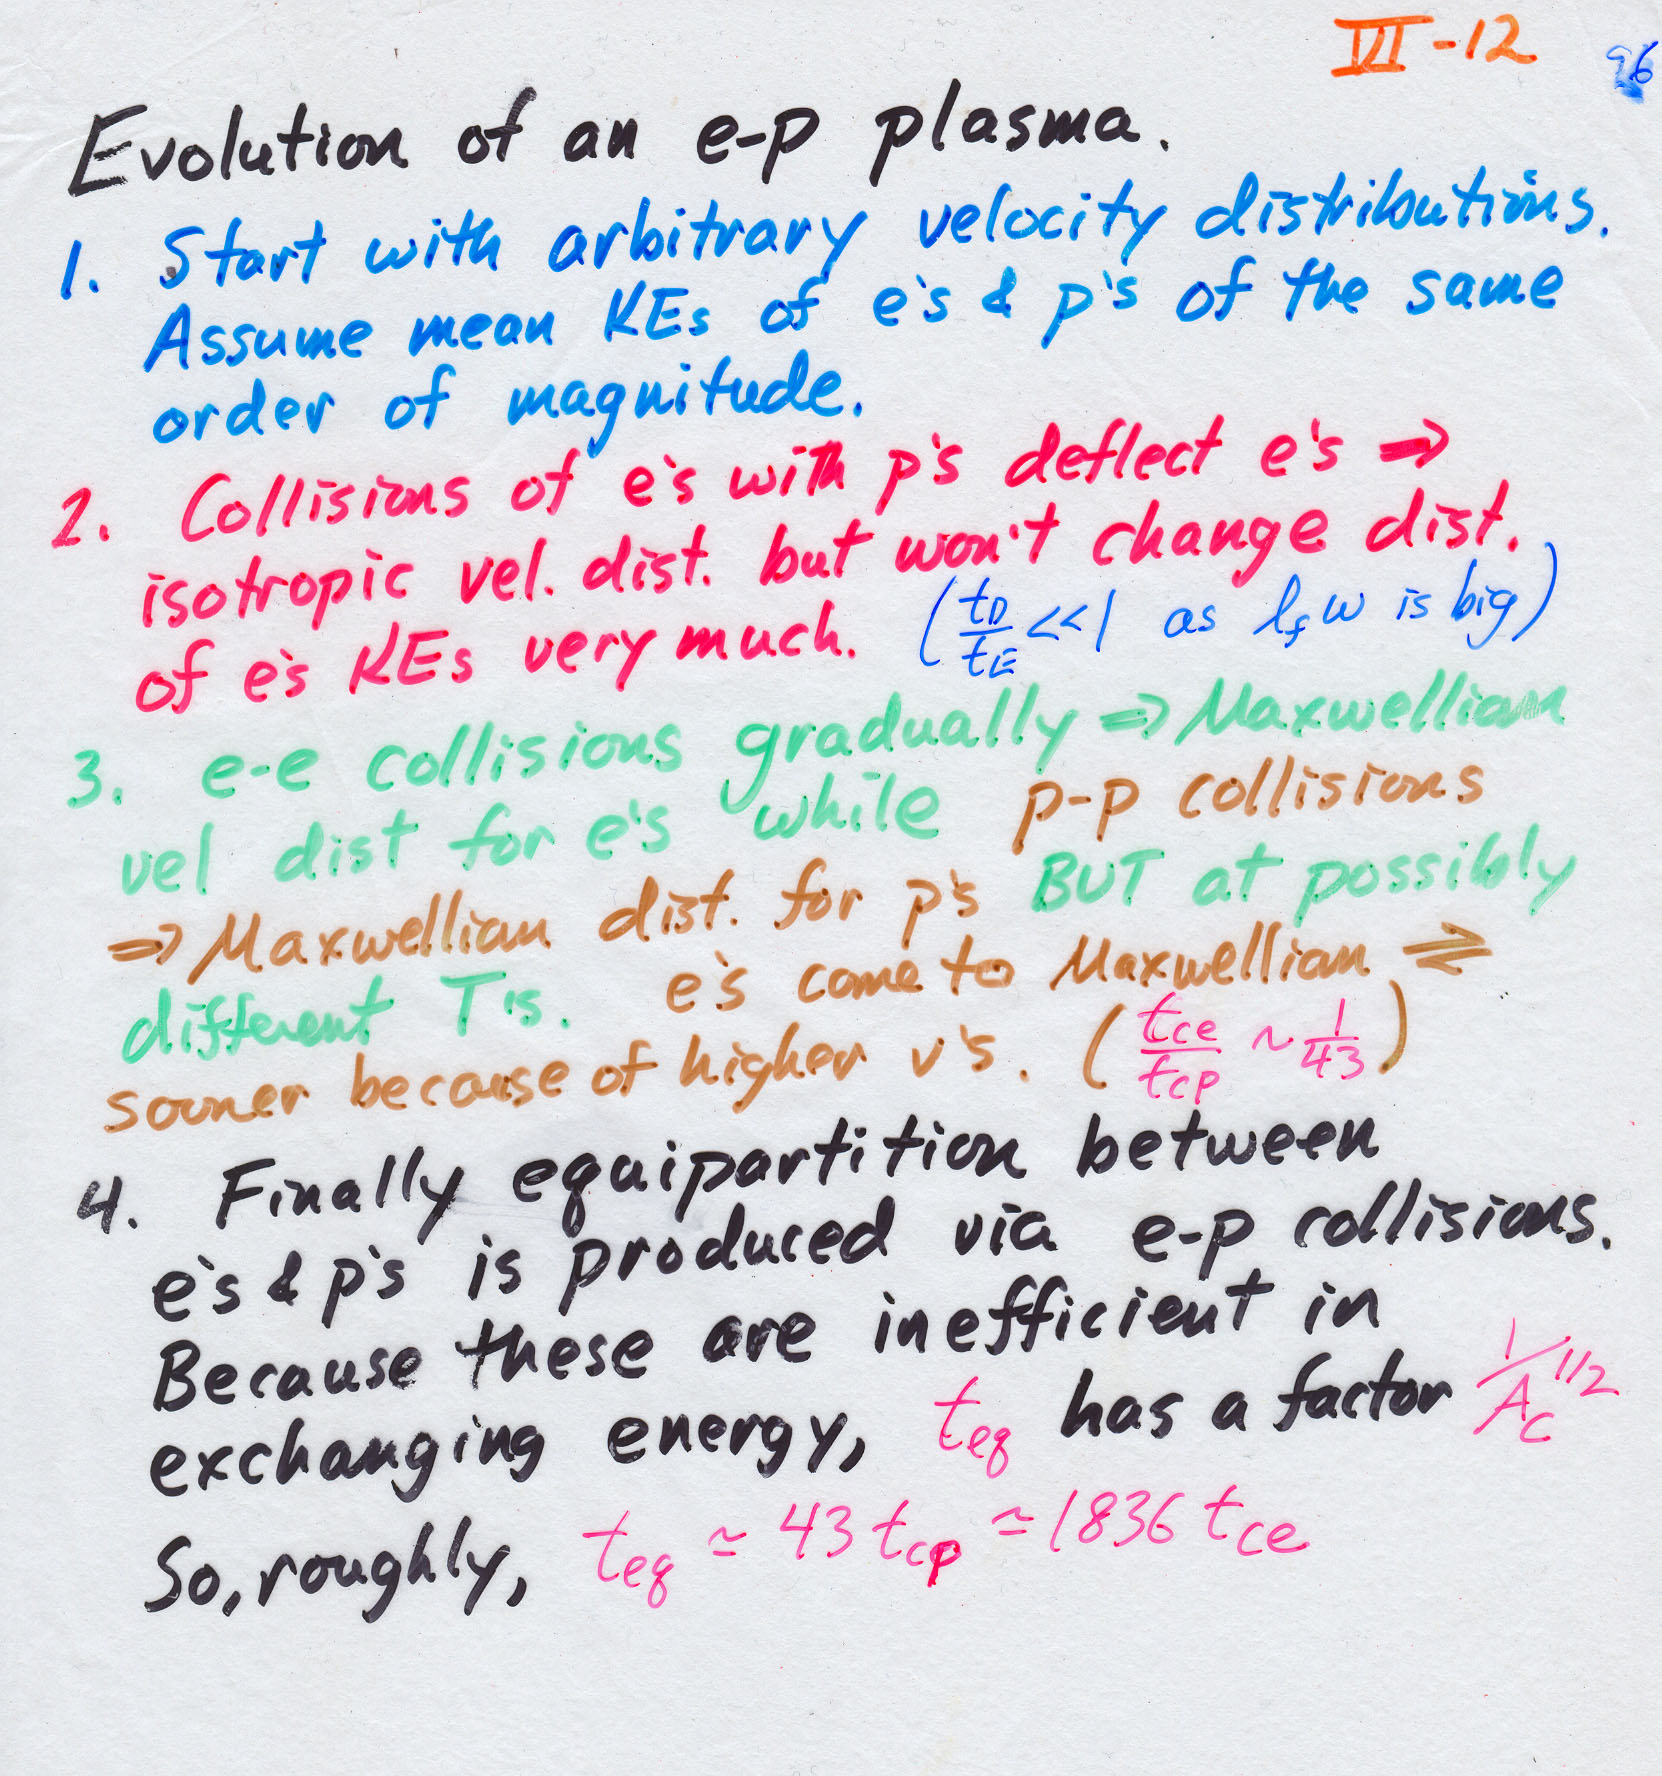 VI-12
96
Evolution of an e-p plasma.
1. Start with arbitrary velocity distributions.
Assume mean KEs of e's & p's of the same
order of magnitude.
2. Collisions of e's with p's deflect e's ⇒
isotropic vel. dist. but won't change dist.
of e's KEs very much. (t_D/t_E <<1 as l_f w is big)
3. e-e collisions gradually ⇒ Maxwellian
vel dist for e's while p-p collisions
⇒ Maxwellian dist. for p's BUT at possibly
different T's. e's come to Maxwellian ⇌
sooner because of higher v's. (t_ce/t_cp ~ 1/43)
4. Finally equipartition between
e's & p's is produced via e-p collisions.
Because these are inefficient in
exchanging energy, t_eq has a factor 1/A_c^1/2
So, roughly, t_eq ≃ 43 t_cp ≃ 1836 t_ce